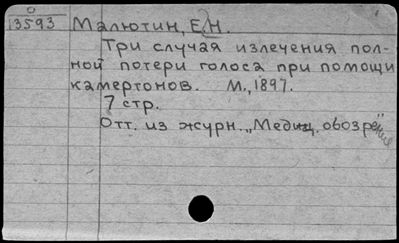 0
13593 Малютин, Е. Н.
Три случая излечения пол-
ной потери голоса при помощи
камертонов. М., 1897.
7 стр.
Отт. из журн. „Медиц. обозрение"